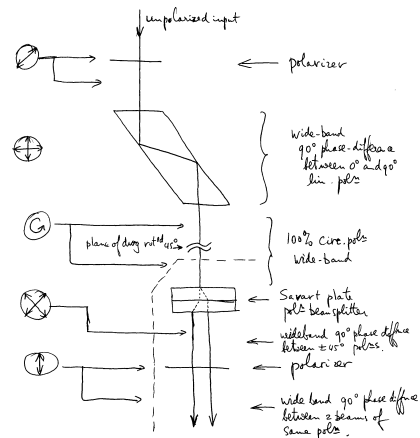 unpolarized input
polarizer
wide-band
90° phase-difference
between 0° and 90°
lin. pol<sup>ns</sup>
G
plane of dwg rot<sup>td</sup> 45°
100% circ. pol<sup>n</sup>
wide-band
Savart plate
pol<sup>n</sup> beamsplitter
wideband 90° phase diffnce
between ±45° pol<sup>n</sup>s.
polarizer
wide band 90° phase diffnce
between 2 beams of
same pol<sup>n</sup>.